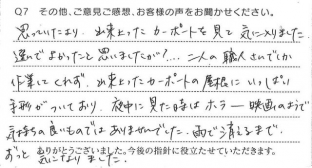 Q7 その他、ご意見ご感想、お客様の声をお聞かせください。
思っていたより、出来上ったカーポートを見て気に入りました。
選んでよかったと思いましたが?…。二人の職人さんでしか
作業してくれず、出来上ったカーポートの屋根に いっぱい
手形がついており、夜中に見た時はホラー映画のようで
気持ちの良いものではありませんでした。雨で消えるまで、
ずっと
ありがとうございました。今後の指針に役立たせていただきます。
気になりました。